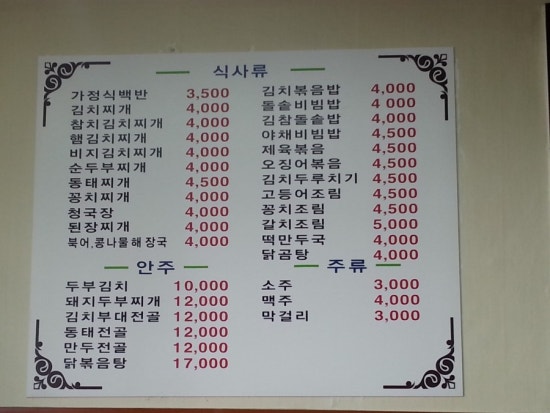 식사류
가정식백반 3,500
김치찌개 4,000
참치김치찌개 4,000
햄김치찌개 4,000
비지김치찌개 4,000
순두부찌개 4,000
동태찌개 4,500
꽁치찌개 4,000
청국장 4,000
된장찌개 4,000
북어,콩나물해장국 4,000
김치볶음밥 4,000
돌솥비빔밥 4,000
김참돌솥밥 4,000
야채비빔밥 4,500
제육볶음 4,500
오징어볶음 4,500
김치두루치기 4,500
고등어조림 4,500
꽁치조림 4,500
갈치조림 5,000
떡만두국 4,000
닭곰탕 4,000
안주
두부김치 10,000
돼지두부찌개 12,000
김치부대전골 12,000
동태전골 12,000
만두전골 12,000
닭볶음탕 17,000
주류
소주 3,000
맥주 4,000
막걸리 3,000